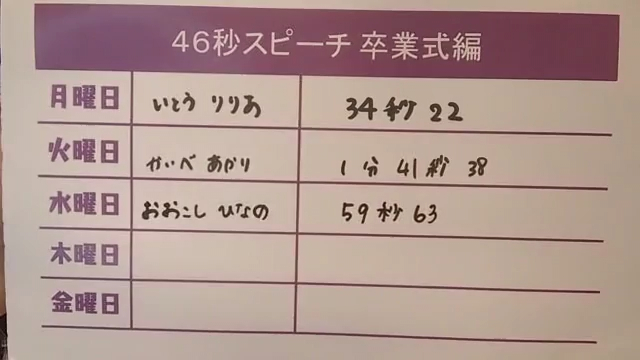 46秒スピーチ 卒業式編
月曜日 いとう りりあ 34秒22
火曜日 かいべ あかり 1分41秒38
水曜日 おおこし ひなの 59秒63
木曜日
金曜日